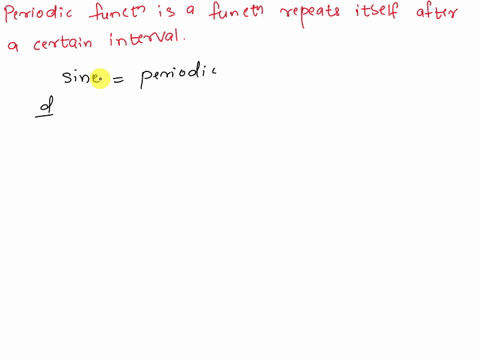 Periodic functn is a functn repeats itself after
a certain interval.
sine = periodic
d